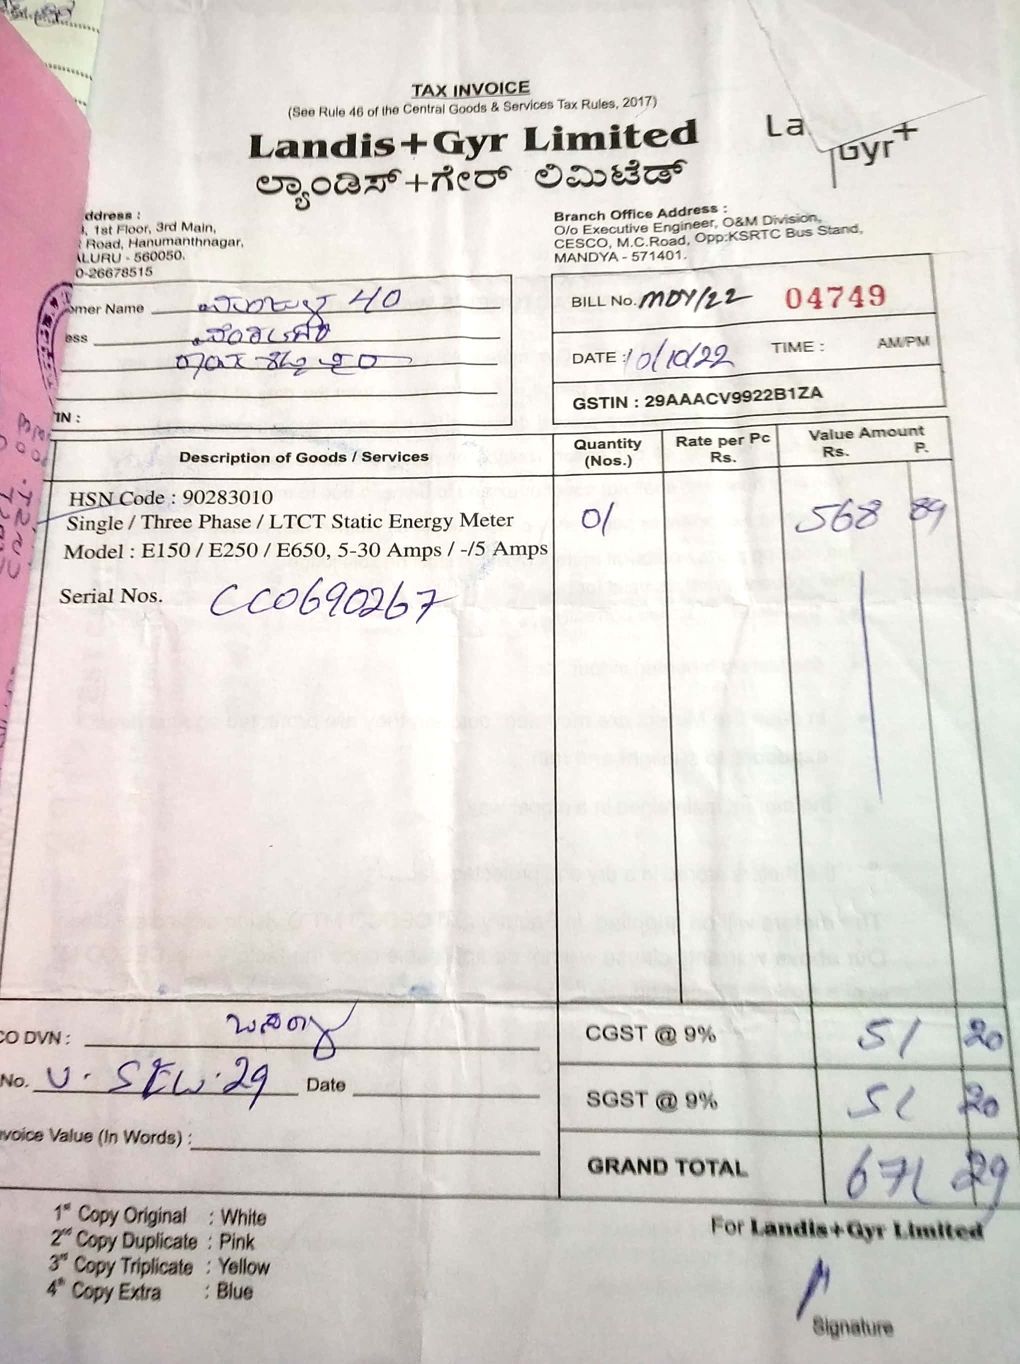 TAX INVOICE
(See Rule 46 of the Central Goods & Services Tax Rules, 2017)
Landis+Gyr Limited
ಲ್ಯಾಂಡಿಸ್+ಗೇರ್ ಲಿಮಿಟೆಡ್
La
Gyr+
ddress :
, 1st Floor, 3rd Main,
Road, Hanumanthnagar,
ALURU - 560050.
0-26678515
Branch Office Address :
O/o Executive Engineer, O&M Division,
CESCO, M.C.Road, Opp:KSRTC Bus Stand,
MANDYA - 571401.
omer Name 40
ess
IN :
BILL No. MDY/22 04749
DATE : 10/10/22 TIME : AM/PM
GSTIN : 29AAACV9922B1ZA
Description of Goods / Services
Quantity (Nos.)
Rate per Pc Rs.
Value Amount Rs. P.
HSN Code : 90283010
Single / Three Phase / LTCT Static Energy Meter 01 568 89
Model : E150 / E250 / E650, 5-30 Amps / -/5 Amps
Serial Nos. CC0690267
CO DVN :
CGST @ 9% 51 20
No. Date
SGST @ 9% 51 20
nvoice Value (In Words) :
GRAND TOTAL 671 29
1st Copy Original : White
2nd Copy Duplicate : Pink
3rd Copy Triplicate : Yellow
4th Copy Extra : Blue
For Landis+Gyr Limited
Signature